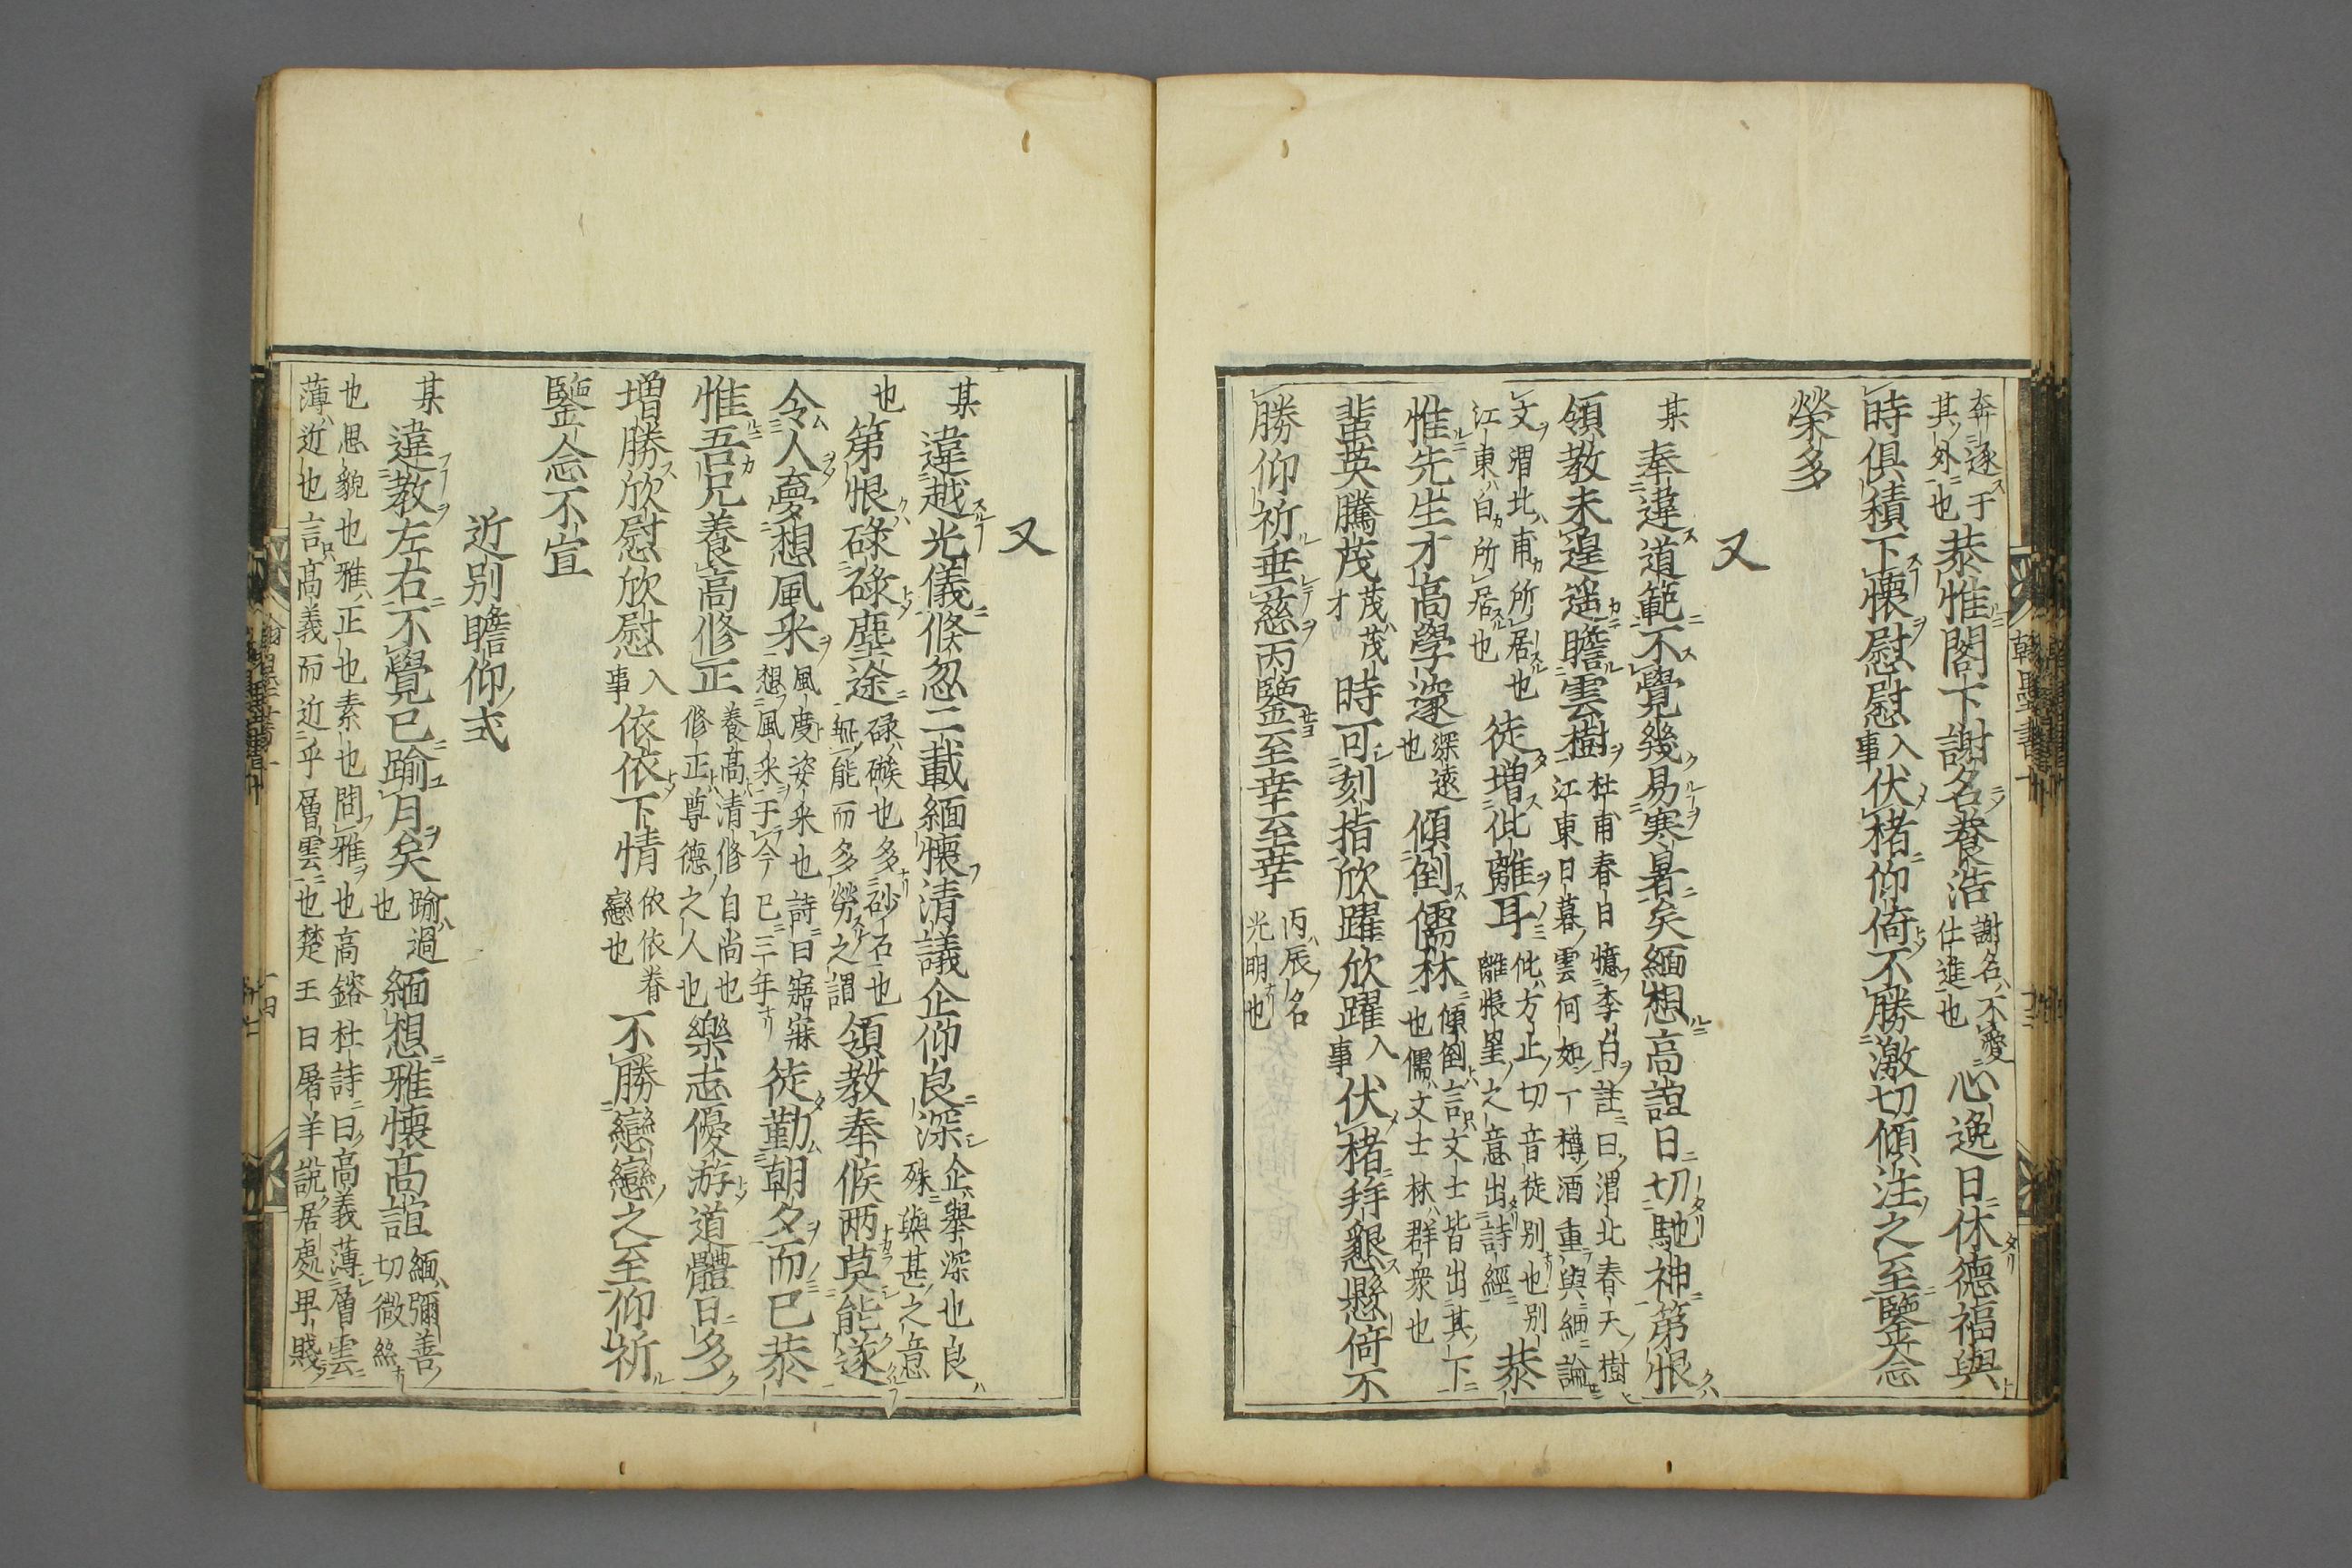 奔逐于其外也恭惟閣下謝名養浩謝名不愛仕進也心逸日休德福與
時俱積下懷慰慰入事伏楮仰倚不勝激切傾注之至鑒念
榮多
又
某奉違道範不覺幾易寒暑矣緬想高誼日切馳神第恨
領教未遑遥瞻雲樹杜甫春日憶李白註曰渭北春天樹江東日暮雲何如一樽酒重與細論
文渭北甫所居也江東白所居也徒増仳離耳仳方止切音徒別也別離悵望之意出詩經恭
惟先生才高學邃深遠也傾倒儒林傾倒言文士皆出其下也儒文士林群衆也
蜚英騰茂茂茂才時可刻指欣躍欣躍入事伏楮拜懇懸倚不
勝仰祈垂慈丙鑒至幸至幸丙辰名光明也
又
某違越光儀倐忽二載緬懷清議企仰良深企舉深也良殊與甚之意
也第恨碌碌塵途碌磙也多砂石也無能而多勞之謂領教奉候両莫能遂
令人夢想風采風度姿采也詩曰寤寐想風采于今已三年徒勤朝夕而已恭
惟吾兄養高修正養高清修自尚也修正尊德之人也樂志優游道體日多
増勝欣慰欣慰入事依依下情依依眷戀也不勝戀戀之至仰祈
鑒念不宣
近別瞻仰式
某違教左右不覺已踰月矣踰過也緬想雅懷高誼緬彌善切微絲
也思貌也雅正也素也問雅也高鎔杜詩曰高義薄層雲
薄近也言高義而近乎層雲也楚王曰屠羊說居處卑賤